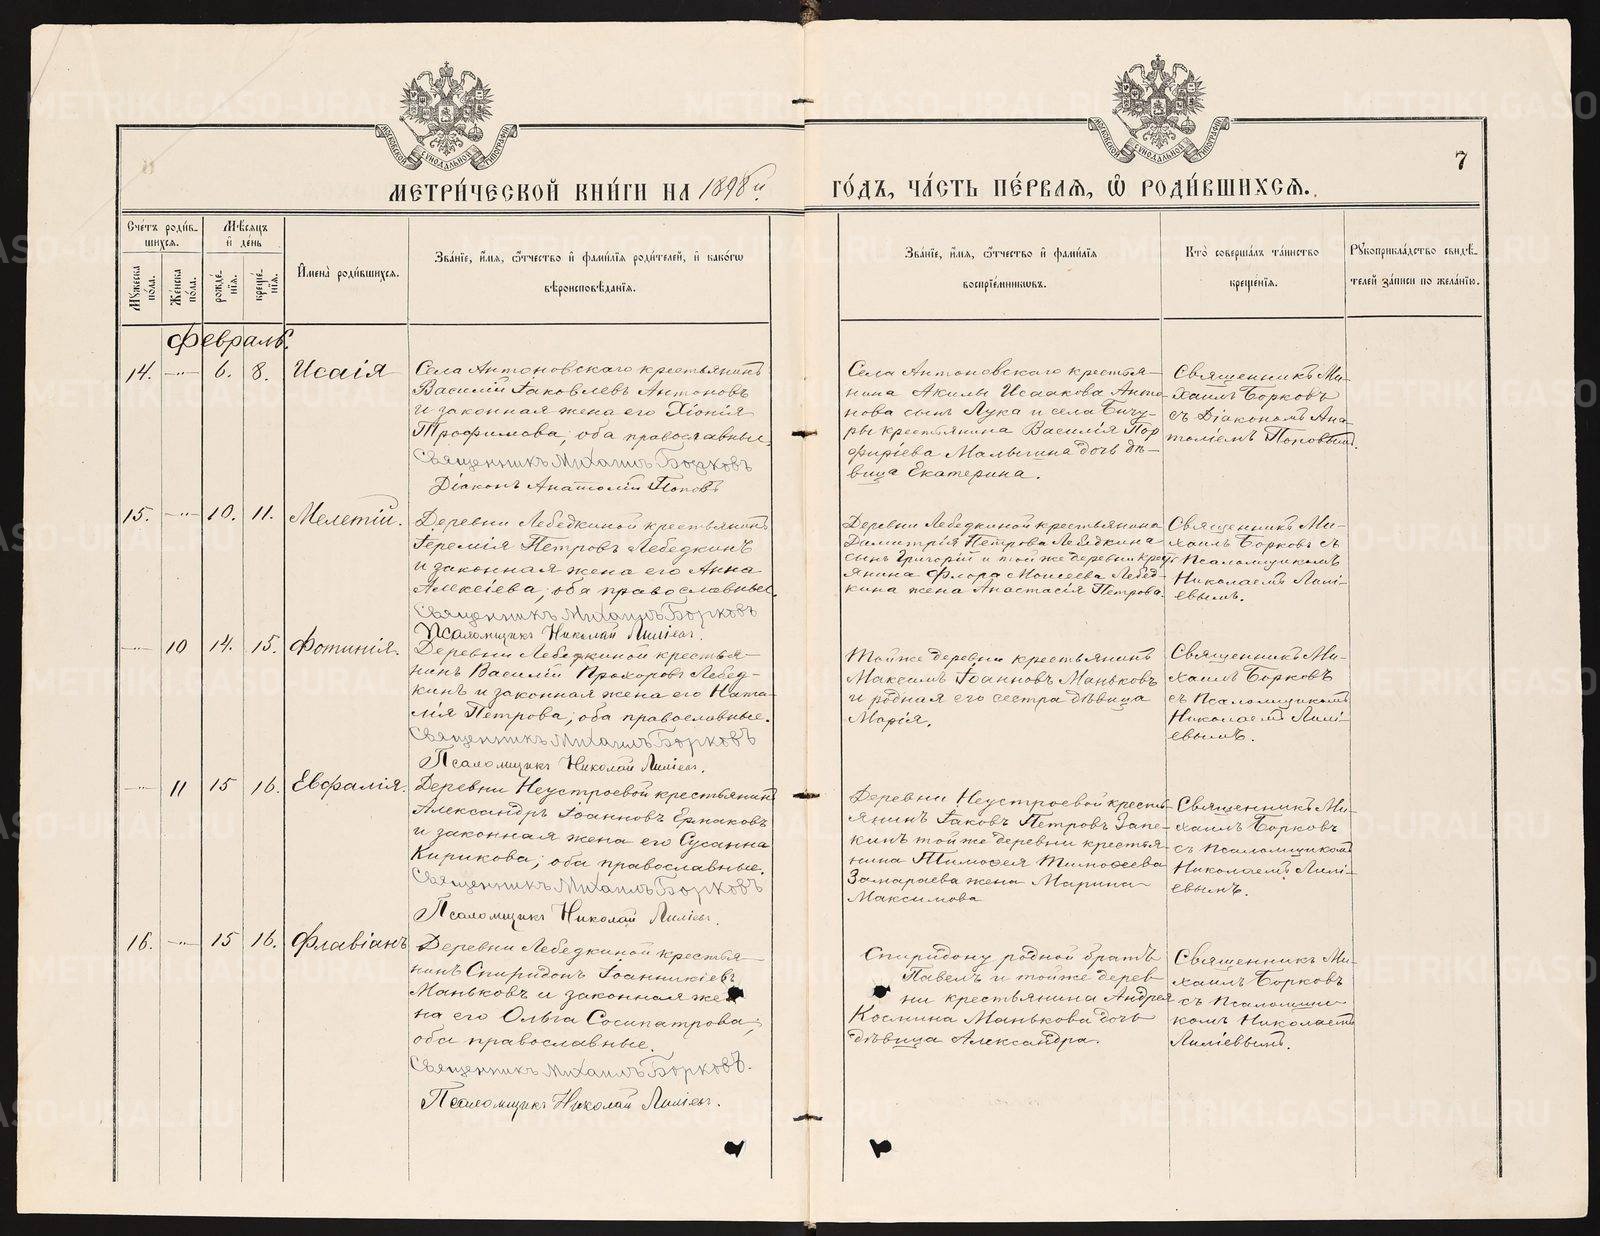 МОСКОВСКОЙ СѴНОДАЛЬНОЙ ТИПОГРАФІИ
МОСКОВСКОЙ СѴНОДАЛЬНОЙ ТИПОГРАФІИ
7
МЕТРИ́ЧЕСКОЙ КНИ́ГИ НА 1898й
ГО́ДЪ, ЧА́СТЬ ПЕ́РВАЯ, Ѡ РОДИ́ВШИХСЯ.
Сче́тъ роди́вшихся.
Мѣ́сяцъ и де́нь
Мꙋ́жеска по́ла.
Же́нска по́ла.
рожде́нїя.
креще́нїя.
И҆мена̀ роди́вшихся.
Зва́нїе, и҆́мя, ѻ҆́тчество и҆ фами́лїя роди́телей, и҆ како́гѡ
вѣроисповѣ́данїя.
Зва́нїе, и҆́мя, ѻ҆́тчество и҆ фами́лїя
воспрїе́мникѡвъ.
Кто̀ соверша́лъ та́инство
креще́нїя.
Рꙋкоприкла́дство свидѣ́-
телей за́писи по жела́нїю.
Февраль.
14. —"— 6. 8. Исаія
Села Антоновскаго крестьянинъ
Василій Іаковлевъ Антоновъ
и законная жена его Хіонія
Трофимова, оба православные.
Священникъ Михаилъ Борковъ
Діаконъ Анатолій Поповъ
Села Антоновскаго крестья-
нина Акилы Исаакова Анто-
нова сынъ Лука и села Бичу-
ры крестьянина Василія Пор
фиріева Малыгина дочь дѣ-
вица Екатерина.
Священникъ Ми-
хаилъ Борковъ
съ Діакономъ Ана-
толіемъ Поповымъ.
15. —"— 10. 11. Мелетій.
Деревни Лебедкиной крестьянинъ
Іеремія Петровъ Лебедкинъ
и законная жена его Анна
Алексіева, оба православные.
Священникъ Михаилъ Борковъ
Псаломщикъ Николай Лиліевъ.
Деревни Лебедкиной крестьянина
Димитрія Петрова Лебедкина
сынъ Григорій и той же деревни крест
янина Флора Моисеева Лебед-
кина жена Анастасія Петрова.
Священникъ Ми-
хаилъ Борковъ съ
Псаломщикомъ
Николаемъ Лилі-
евымъ.
—"— 10 14. 15. Фотинія.
Деревни Лебедкиной крестья-
нинъ Василій Прохоровъ Лебед-
кинъ и законная жена его Ната-
лія Петрова, оба православные.
Священникъ Михаилъ Борковъ
Псаломщикъ Николай Лиліевъ.
Той же деревни крестьянинъ
Максимъ Іоанновъ Маньковъ
и родная его сестра дѣвица
Марія.
Священникъ Ми-
хаилъ Борковъ
съ Псаломщикомъ
Николаемъ Лилі-
евымъ.
—"— 11 15 16. Евфалія.
Деревни Неустроевой крестьянинъ
Александръ Іоанновъ Ермаковъ
и законная жена его Сусанна
Кирикова, оба православные.
Священникъ Михаилъ Борковъ
Псаломщикъ Николай Лиліевъ.
Деревни Неустроевой кресть-
янинъ Іаковъ Петровъ Запе-
кинъ той же деревни крестья-
нина Тимофея Тимофеева
Замараева жена Марина
Максимова
Священникъ Ми-
хаилъ Борковъ
съ Псаломщикомъ
Николаемъ Лилі-
евымъ.
16. —"— 15 16. Флавіанъ
Деревни Лебедкиной крестья-
нинъ Спиридонъ Іоанникіевъ
Маньковъ и законная же-
на его Ольга Сосипатрова,
оба православные.
Священникъ Михаилъ Борковъ.
Псаломщикъ Николай Лиліевъ.
Спиридону родной братъ
Павелъ и той же дерев-
ни крестьянина Андрея
Космина Манькова дочь
дѣвица Александра.
Священникъ Ми-
хаилъ Борковъ
съ Псаломщи-
комъ Николаемъ
Лиліевымъ.
METRIKI.GASO-URAL.RU